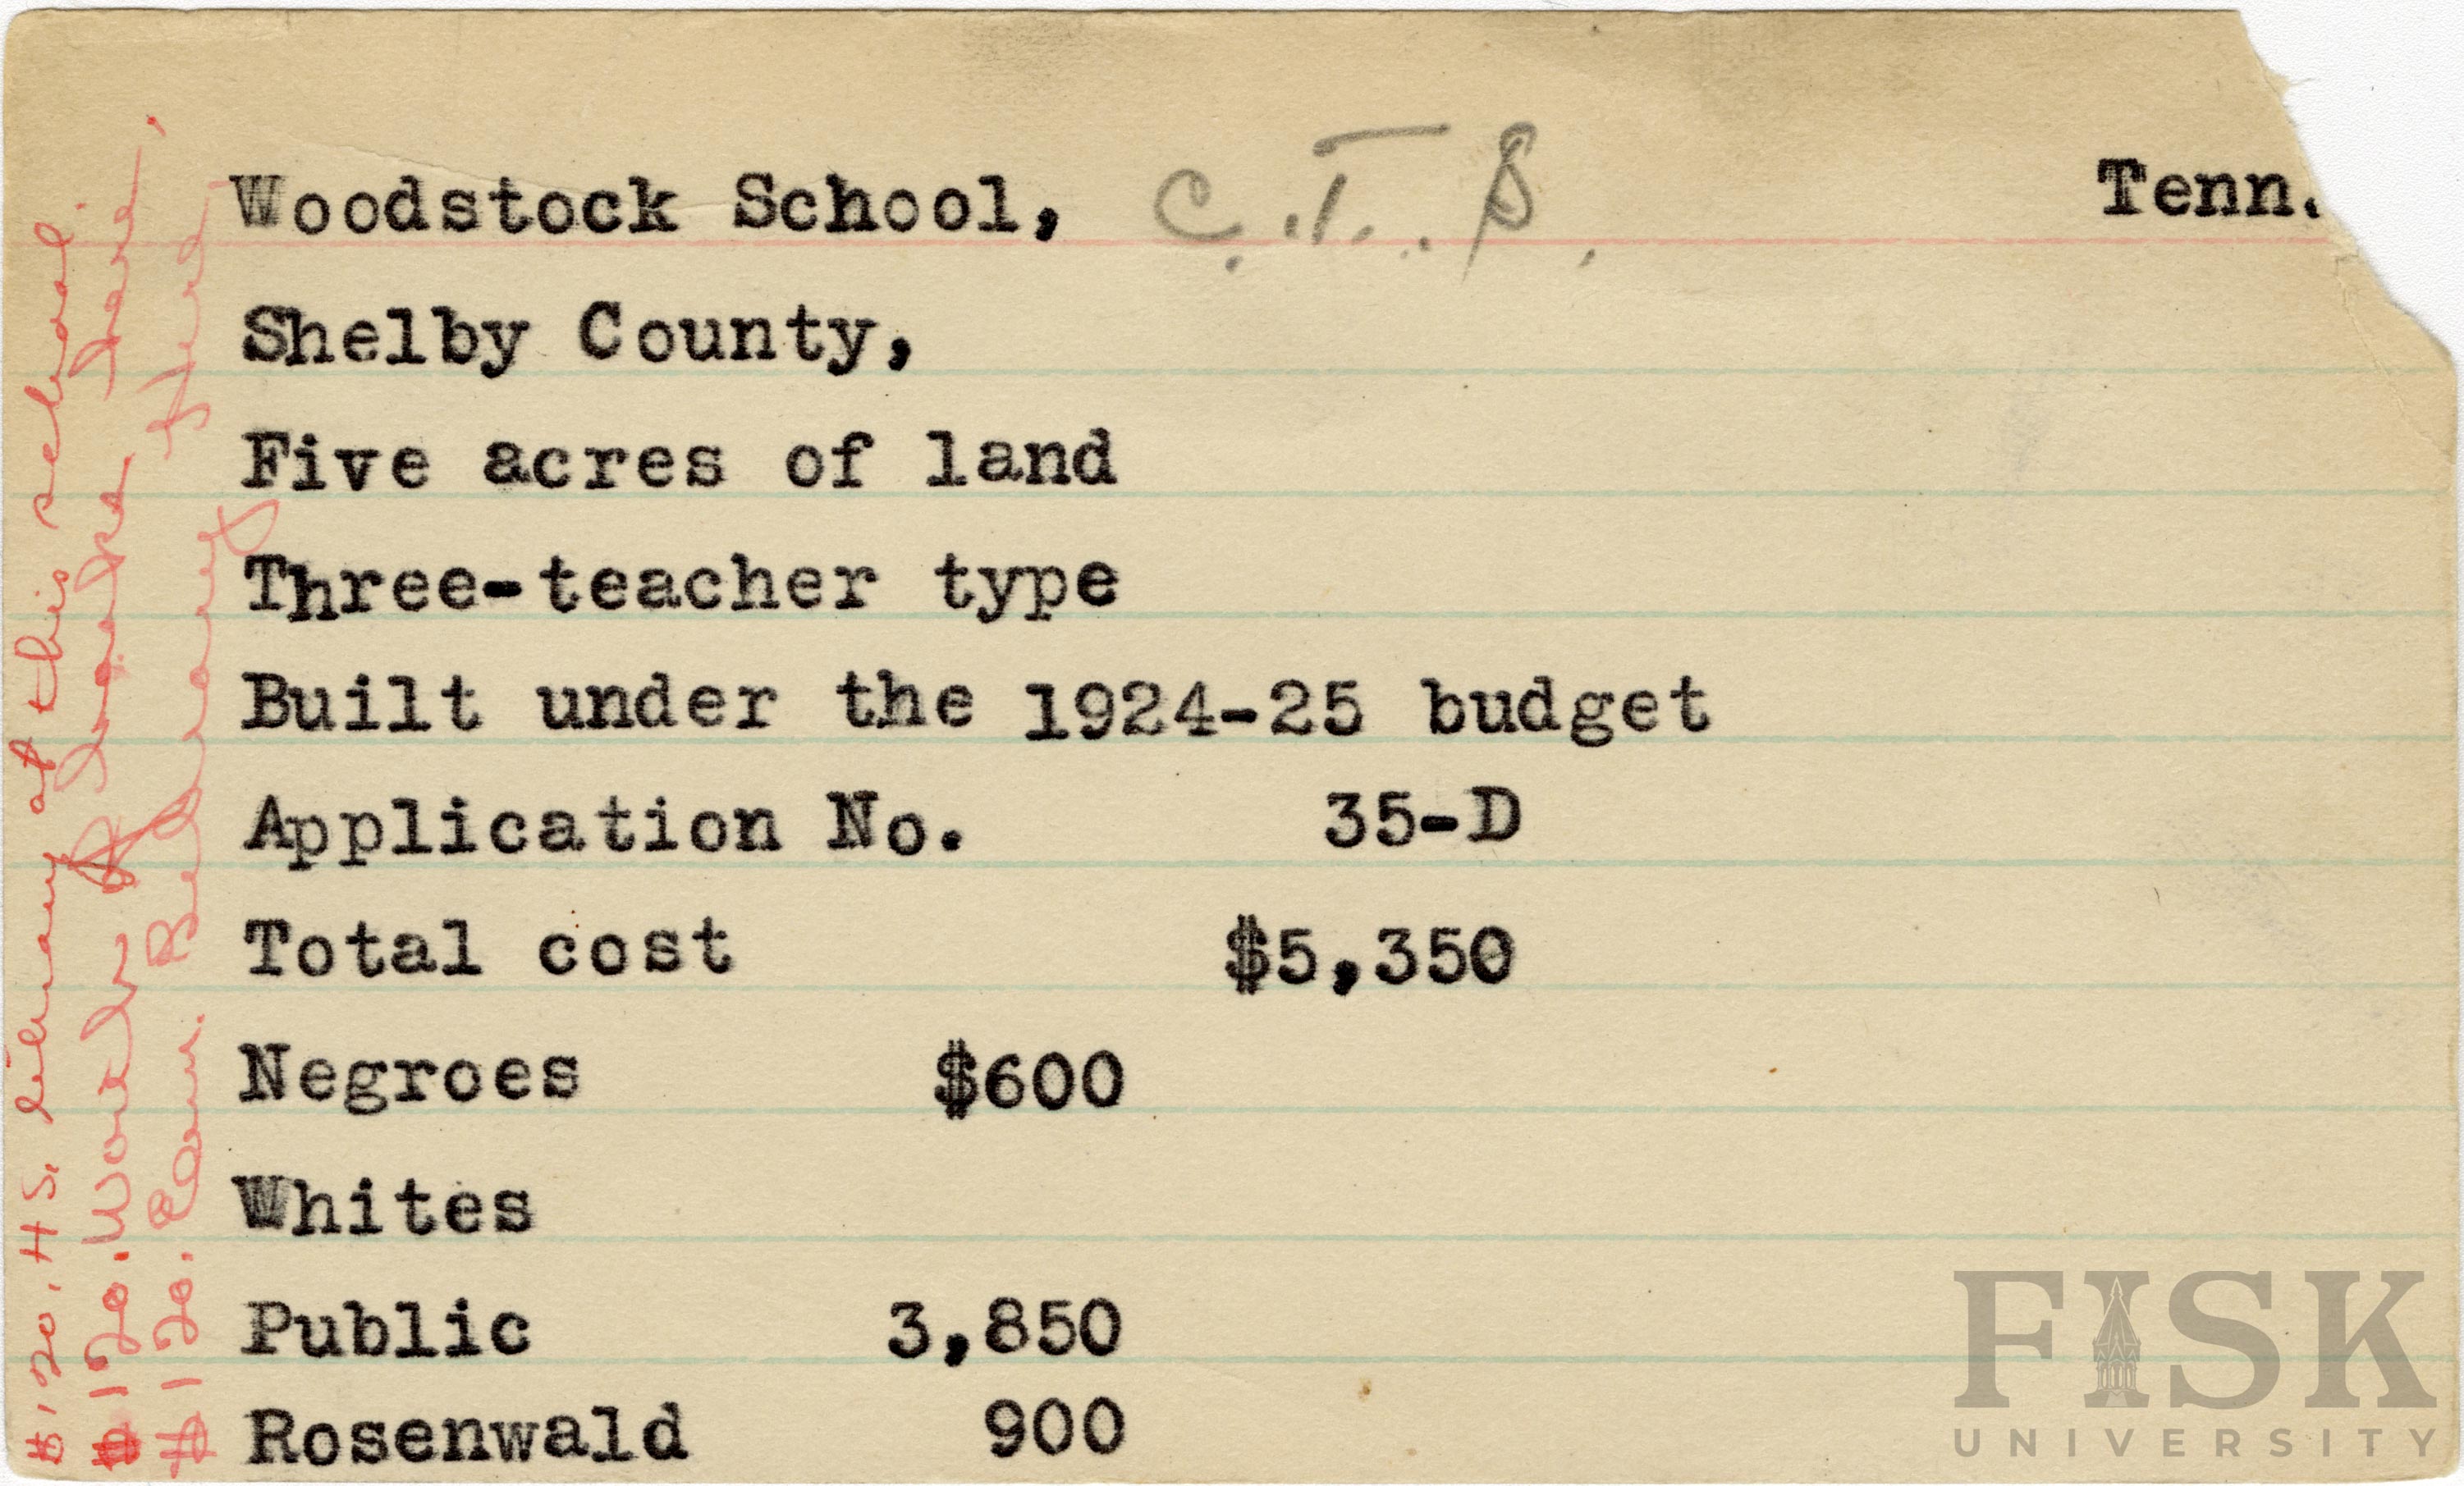 Woodstock School, C.T.S. Tenn.
Shelby County,
Five acres of land
Three-teacher type
Built under the 1924-25 budget
Application No. 35-D
Total cost $5,350
Negroes $600
Whites
Public 3,850
Rosenwald 900
$120. H S. library at this school.
$120. Work here.
$120. Elem. Library Here
FISK
UNIVERSITY